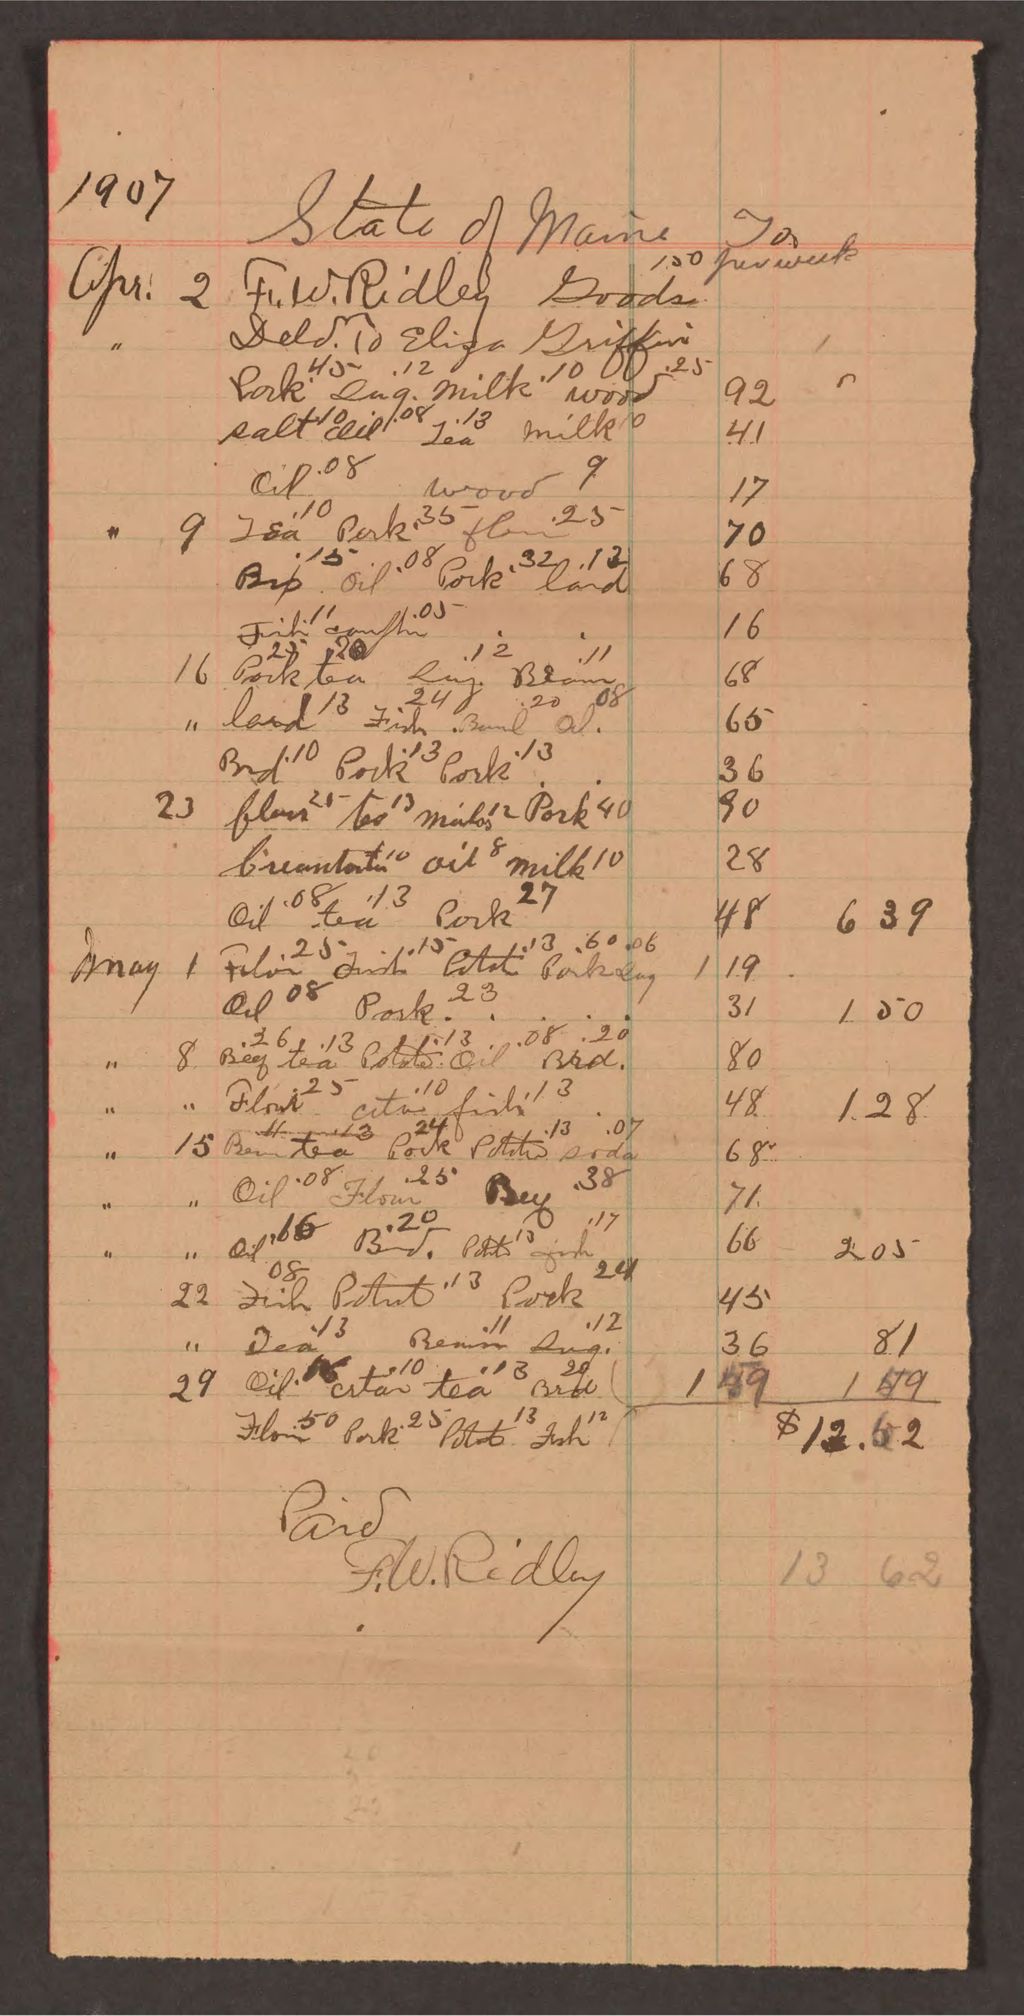 1907
State of Maine To
1.50 per week
Apr. 2 F. W. Ridley Goods
" Deld. To Eliza Griffin
Pork .45 Sug. .12 milk .10 wood .25 92
salt .10 Oil .08 Tea .13 milk 10 41
Oil .08 wood 9 17
" 9 Tea .10 Pork .35 flour .25 70
.15 Oil .08 Pork .32 lard .13 68
Fish 11 .05 16
16 Pork 25 tea 20 Sug. .12 Beans .11 68
" lard 13 Fish 24 .20 Oil. 08 65
Brd .10 Pork .13 Pork .13 36
23 flour 25 tea 13 12 Pork 40 90
Creamtartar 10 oil 8 milk 10 28
Oil .08 tea .13 Pork 27 48 6 39
May 1 Flour 25 Fish .15 Potato .13 Pork .60 Sug .06 1 19
Oil 08 Pork. 23 31 1 50
" 8 Beef .26 tea .13 Potato .13 Oil .08 Brd. .20 80
" " Flour .25 .10 fish 13 48 1 28
" 15 Bean 11 tea .13 Pork 24 Potato .13 soda .07 68
" " Oil .08 Flour .25 Beef .38 71
" " Oil .16 Brd. .20 Potato 13 fish .17 66 2 05
22 Fish 08 Potato .13 Pork 24 45
" Tea .13 Beans .11 Sug. .12 36 81
29 Oil crtar .10 tea .13 Brd 20 1 59 1 59
Flour 50 Pork .25 Potato 13 Fish 12 $12.62
Paid
F. W. Ridley
13 62